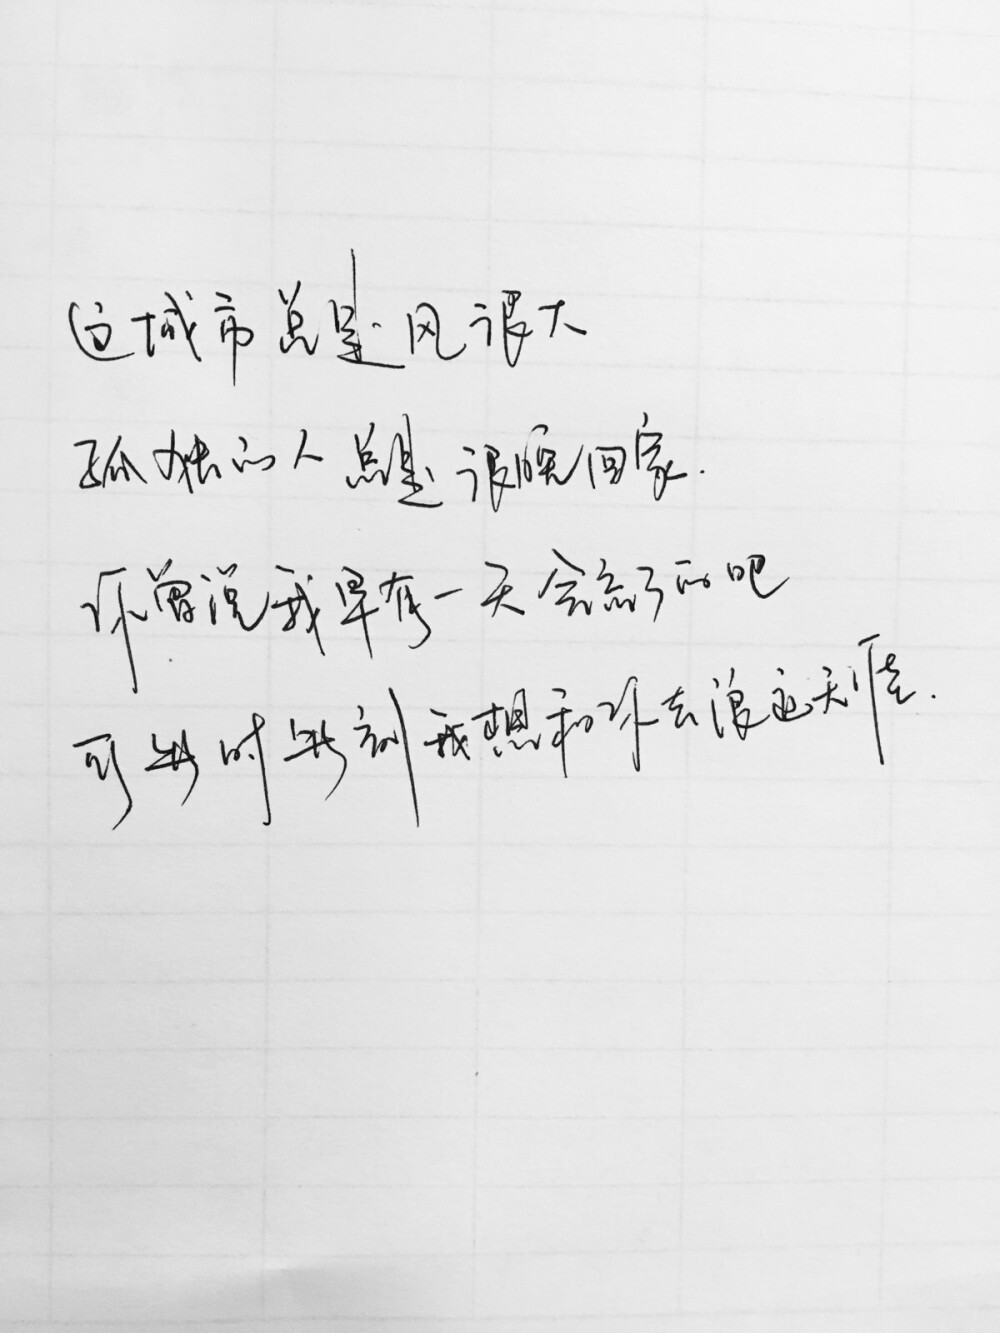 这城市总是风很大
孤独的人总是很晚回家.
你曾说我早有一天会忘了的吧
可此时此刻我想和你去浪迹天涯.